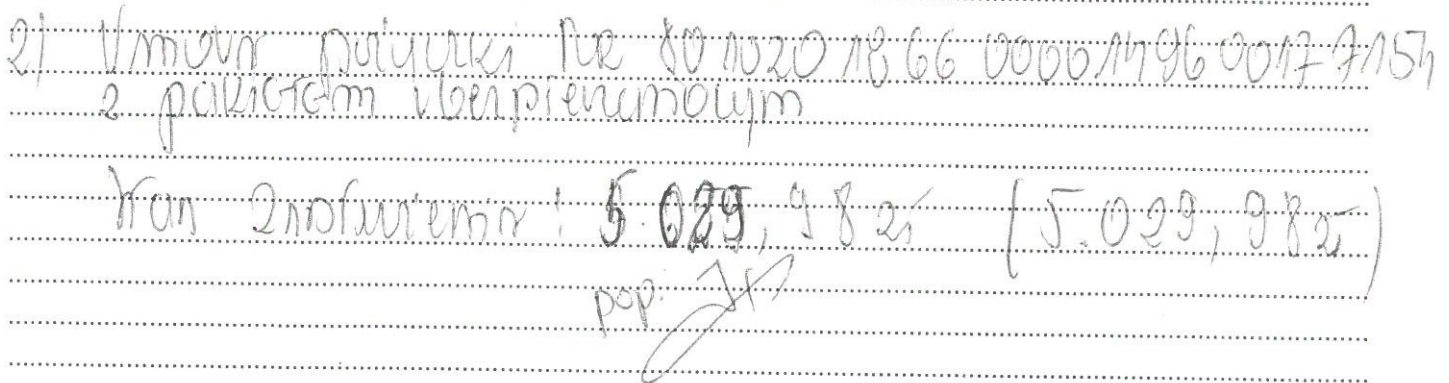 2) Umowa pożyczki Nr 80 1020 1866 0000 1496 0017 7154
z pakietem ubezpieczeniowym
Stan zadłużenia: 5.029,98 zł (5.029,98 zł)
pop.